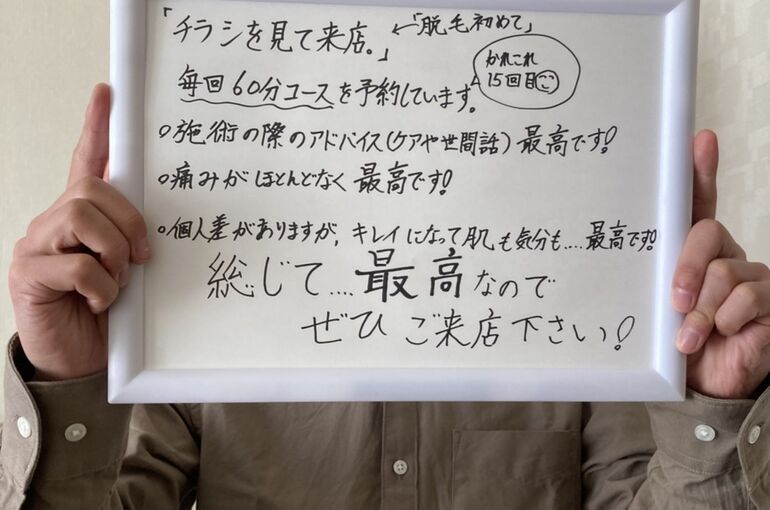 「チラシを見て来店。」←「脱毛初めて」
かれこれ
15回目
毎回60分コースを予約しています。
○施術の際のアドバイス(ケアや世間話)最高です!
○痛みがほとんどなく最高です!
○個人差がありますが、キレイになって肌も気分も....最高です!
総じて....最高なので
ぜひご来店下さい!